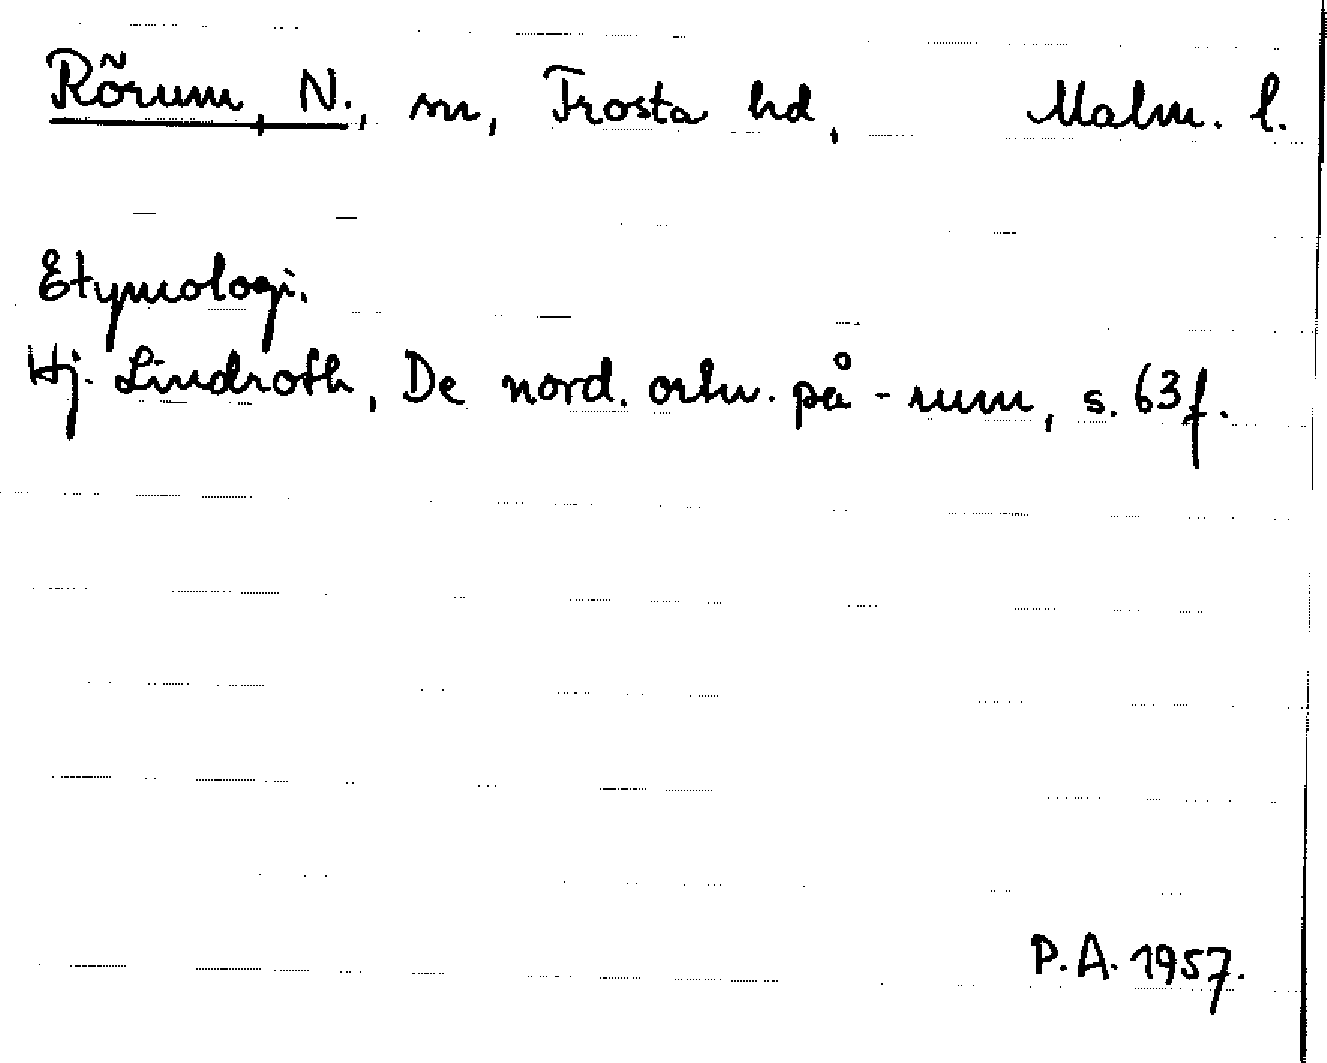 Rõrum, N., sn, Frosta hd, Malm. l.
Etymologi.
Hj. Lindroth, De nord. ortn. på -rum, s. 63 f.
P.A. 1957.